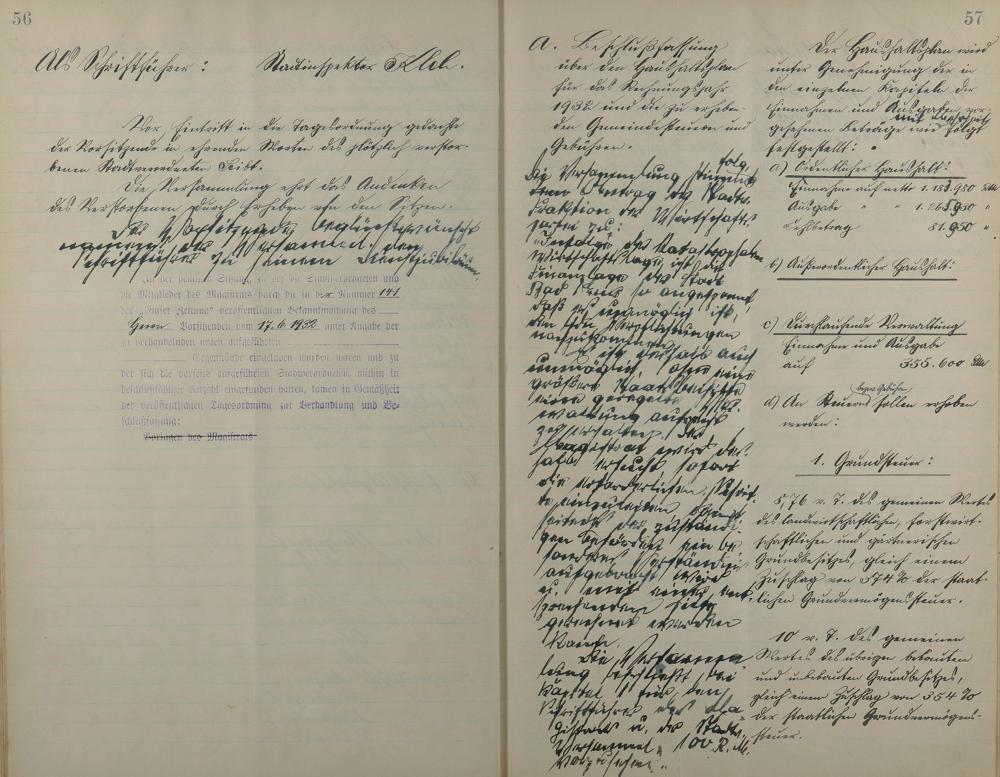 56
Als Schriftführer: Stadtinspektor
Vor Eintritt in die Tagesordnung gedachte
der Vorsitzende in ehrenden Worten des plötzlich verstor-
benen Stadtverordneten
Die Versammlung ehrt das Andenken
des Verstorbenen durch Erheben von den Sitzen.
Der Vorsitzende beglückwünscht
namens der Versammlung den
Schriftführer zu seinem Dienstjubiläum.
Zu der heutigen Sitzung, zu der die Stadtverordneten und
die Mitglieder des Magistrats durch die in der Nummer 141
der „Emser Zeitung“ veröffentlichten Bekanntmachung des
Herrn Vorsitzenden vom 17.6.1932 unter Angabe der
zu verhandelnden unten aufgeführten
Gegenstände eingeladen worden waren und zu
der sich die vorseits aufgeführten Stadtverordneten, mithin in
beschlußfähiger Anzahl eingefunden hatten, kamen in Gemäßheit
der veröffentlichten Tagesordnung zur Verhandlung und Be-
schlußfassung:
Vorlagen des Magistrats
57
A. Beschlußfassung
über den Haushaltsplan
für das Rechnungsjahr
1932 und die zu erheben-
den Gemeindesteuern und
Gebühren.
Die Versammlung stimmt folg.
Antrag der Stadtv.
Fraktion der Wirtschafts-
partei zu:
„Infolge der katastrophalen
Wirtschaftslage ist die
Finanzlage der Stadt
Bad Ems so angespannt,
daß es unmöglich ist,
den Verpflichtungen
nachzukommen.
Es ist deshalb auch
unmöglich, ohne eine
größere Staatsbeihilfe
eine geregelte
waltung aufrecht
zu erhalten. Der
Magistrat wird des-
halb ersucht, sofort
die erforderlichen Schrit-
te einzuleiten, damit
seitens der zuständi-
gen Behörden ein be-
sonderes Verständnis
aufgebracht wird
u. mit einer ent-
sprechenden Hilfe
gerechnet werden
kann.
Die Versamm-
lung beschließt, bei
Kapitel für den
Schriftführer des Ma-
gistrats u. der Stadtv.
Versamml. 100 R.M.
vorzusehen.“
Der Haushaltsplan wird
unter Genehmigung der in
den einzelnen Kapiteln der
Einnahmen und Ausgaben vor-
gesehenen Beträge wie folgt
festgestellt:
a) Ordentlicher Haushalt:
Einnahme auf netto 1.183.980 RM
Ausgabe " " 1.265.930 "
Fehlbetrag 81.950 "
b) Außerordentlicher Haushalt:
c) Durchlaufende Verwaltung
Einnahme und Ausgabe
auf 355.600 RM
bezw. Gebühren
d) An Steuern sollen erhoben
werden:
1. Grundsteuer:
5,76 v. T. des gemeinen Wertes
des landwirtschaftlichen, forstwirt-
schaftlichen und gärtnerischen
Grundbesitzes, gleich einem
Zuschlag von 574 % der staat-
lichen Grundvermögenssteuer.
10 v. T. des gemeinen
Wertes des übrigen bebauten
und unbebauten Grundbesitzes,
gleich einem Zuschlag von 554 %
der staatlichen Grundvermögens-
steuer.